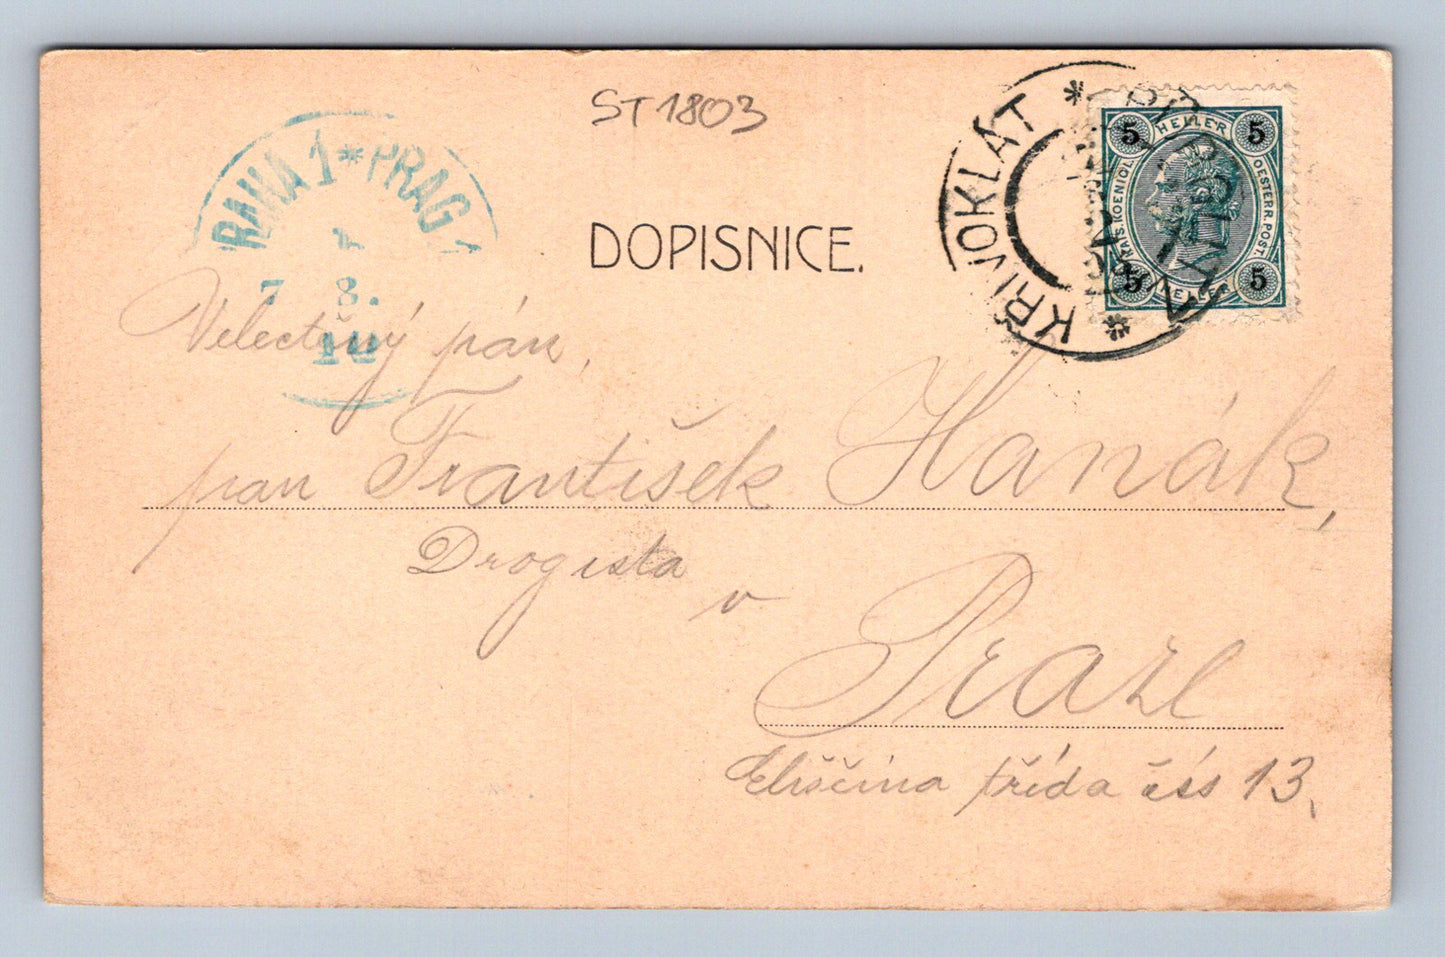 ST1803
PRAHA 1 * PRAG 1
7 8.
10
DOPISNICE.
* KŘIVOKLÁT *
PÜRGLITZ
5 HELLER 5
KAIS. KOENIGL. OESTERR. POST.
5 HELLER 5
Velectěný pán,
pan František Hanák,
Drogista
v
Praze
Eliščina třída čís 13.